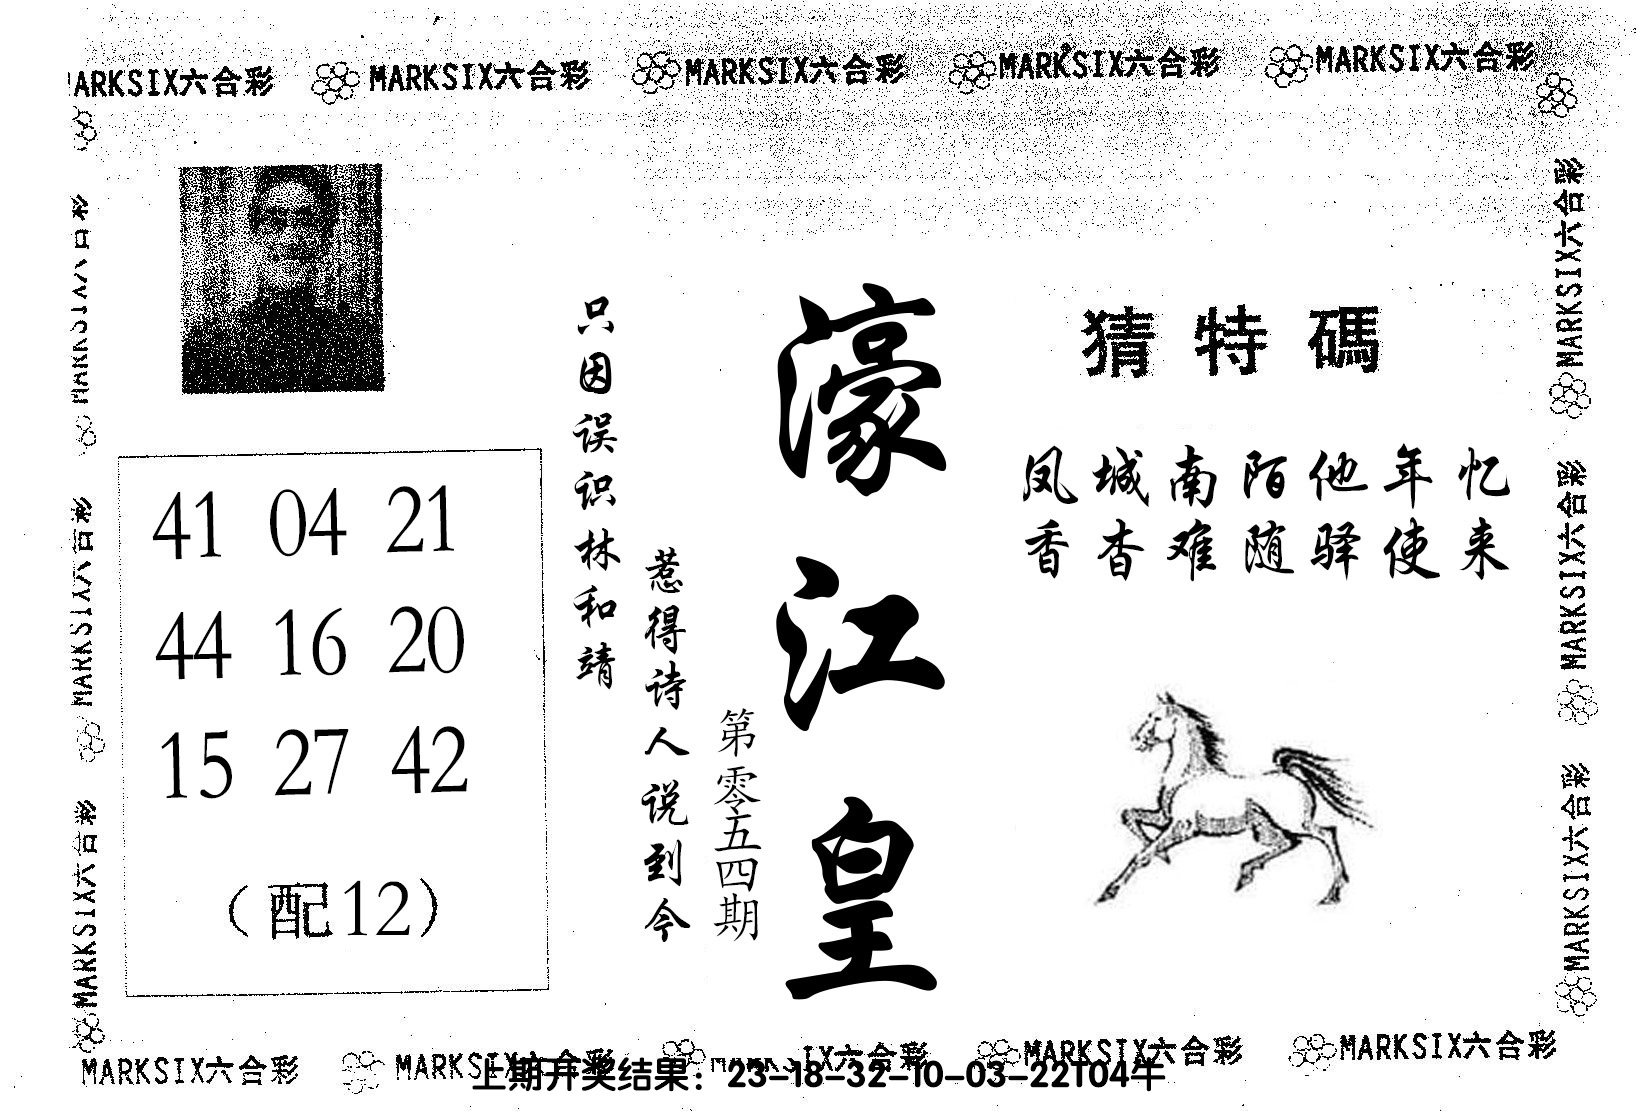 MARKSIX六合彩 MARKSIX六合彩 MARKSIX六合彩 MARKSIX六合彩 MARKSIX六合彩
猜特碼
凤城南陌他年忆
香杳难随驿使来
濠江皇
第零五四期
只因误识林和靖
惹得诗人说到今
41 04 21
44 16 20
15 27 42
（配12）
MARKSIX六合彩
MARKSIX六合彩
MARKSIX六合彩
MARKSIX六合彩
MARKSIX六合彩
MARKSIX六合彩
MARKSIX六合彩 MARKSIX六合彩 MARKSIX六合彩 MARKSIX六合彩 MARKSIX六合彩
上期开奖结果：23-18-32-10-03-22T04牛